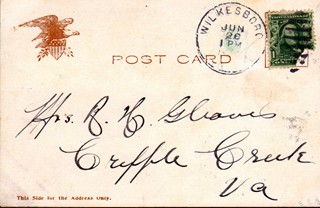 WILKESBORO
JUN
26
1 PM
POST CARD
Mrs. R. H. Gleaves
Cripple Creek
Va
This Side for the Address Only.